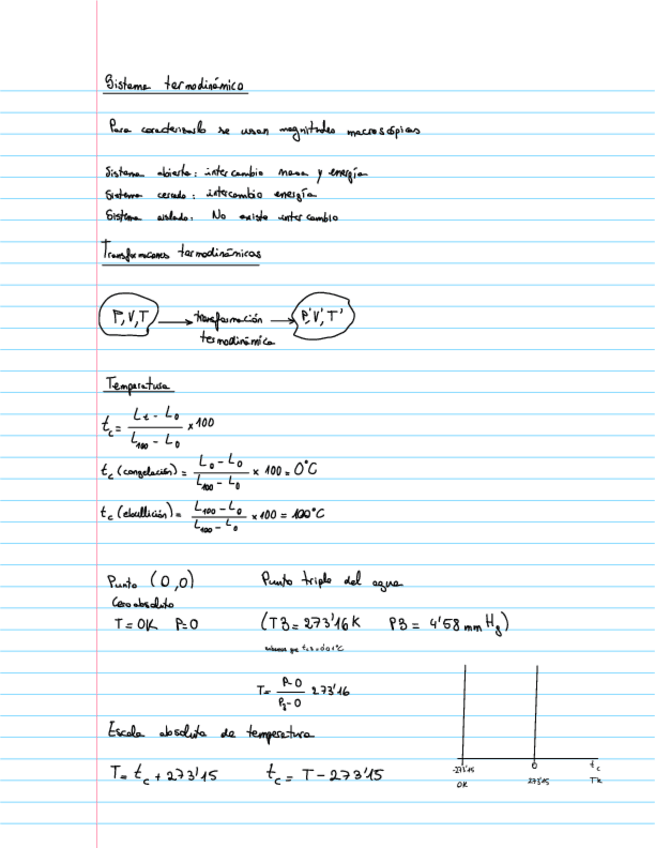 Sistema termodinámico
Para caracterizarlo se usan magnitudes macroscópicas
Sistema abierto: intercambio masa y energía
Sistema cerrado: intercambio energía
Sistema aislado: No existe intercambio
Transformaciones termodinámicas
P,V,T → transformación termodinámica → P',V',T'
Temperatura
t_c = (L_t - L_0) / (L_100 - L_0) × 100
t_c (congelación) = (L_0 - L_0) / (L_100 - L_0) × 100 = 0°C
t_c (ebullición) = (L_100 - L_0) / (L_100 - L_0) × 100 = 100°C
Punto (0,0) Punto triple del agua
Cero absoluto
T = 0K P=0 (T3 = 273'16 K P3 = 4'58 mm Hg)
T = (P-0) / (P_3-0) 273'16
Escala absoluta de temperatura
T = t_c + 273'15 t_c = T - 273'15
-273'15 0 t_c
0K 273'15 TK